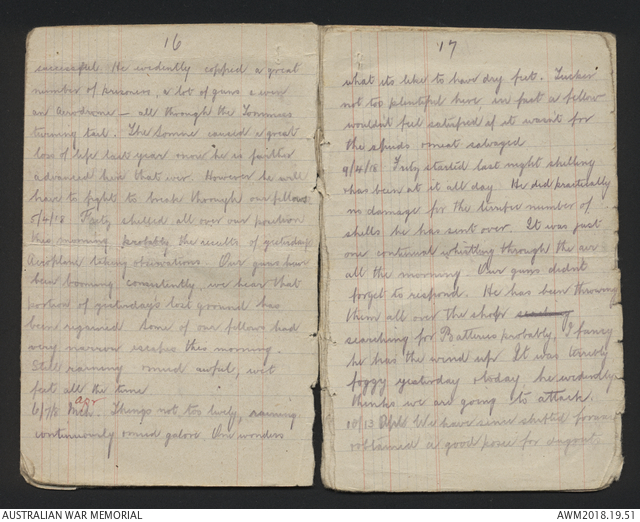 16
successful. He evidently copped a great
number of prisoners, a lot of guns & even
an Aerodrome — all through the Tommies
turning tail. The Somme caused a great
loss of life last year & now he is further
advanced here than ever. However he will
have to fight to break through our fellows.
5/4/18 Fritz shelled all over our position
this morning probably the results of yesterdays
Aeroplane taking observations. Our guns have
been booming consistently, we hear that
portion of yesterday's lost ground has
been regained. Some of our fellows had
very narrow escapes this morning.
Still raining & mud awful, wet
feet all the time
6/7/8 Mch. Apr Things not too lively, raining
continuously & mud galore. One wonders
17
what its like to have dry feet. Tucker
not too plentiful here, in fact a fellow
wouldn't feel satisfied if it wasnt for
the spuds & meat salvaged.
9/4/18 Fritz started last night shelling
& has been at it all day. He did practically
no damage for the number of
shells he has sent over. It was just
one continual whistling through the air
all the morning. Our guns didnt
forget to respond. He has been throwing
them all over the shop
searching for Batteries probably, I fancy
he has the wind up. It was terribly
foggy yesterday & today, he evidently
thinks we are going to attack.
10/13 April We have since shifted forward
& obtained a good possie for dugout,
AUSTRALIAN WAR MEMORIAL
AWM2018.19.51